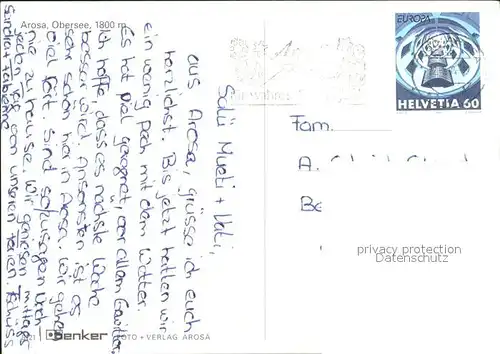 Arosa, Obersee, 1800 m
EUROPA
HELVETIA 60
Salü Mueti + Vati,
aus Arosa, grüsse ich euch
herzlichst. Bis jetzt hatten wir
ein wenig Pech mit dem Wetter.
Es hat viel geregnet, vor allem Gewitter.
Ich hoffe, dass es nächste Woche
besser wird. Ansonsten ist es
sehr schön hier in Arosa. Wir gehen
viel fort. Sind sozusagen
nie zu hause. Wir geniessen
jeden Tag von unseren Ferien. Tschüss
Sandra +
Fam.
A.
Be
privacy protection
Datenschutz
Denker
FOTO + VERLAG AROSA